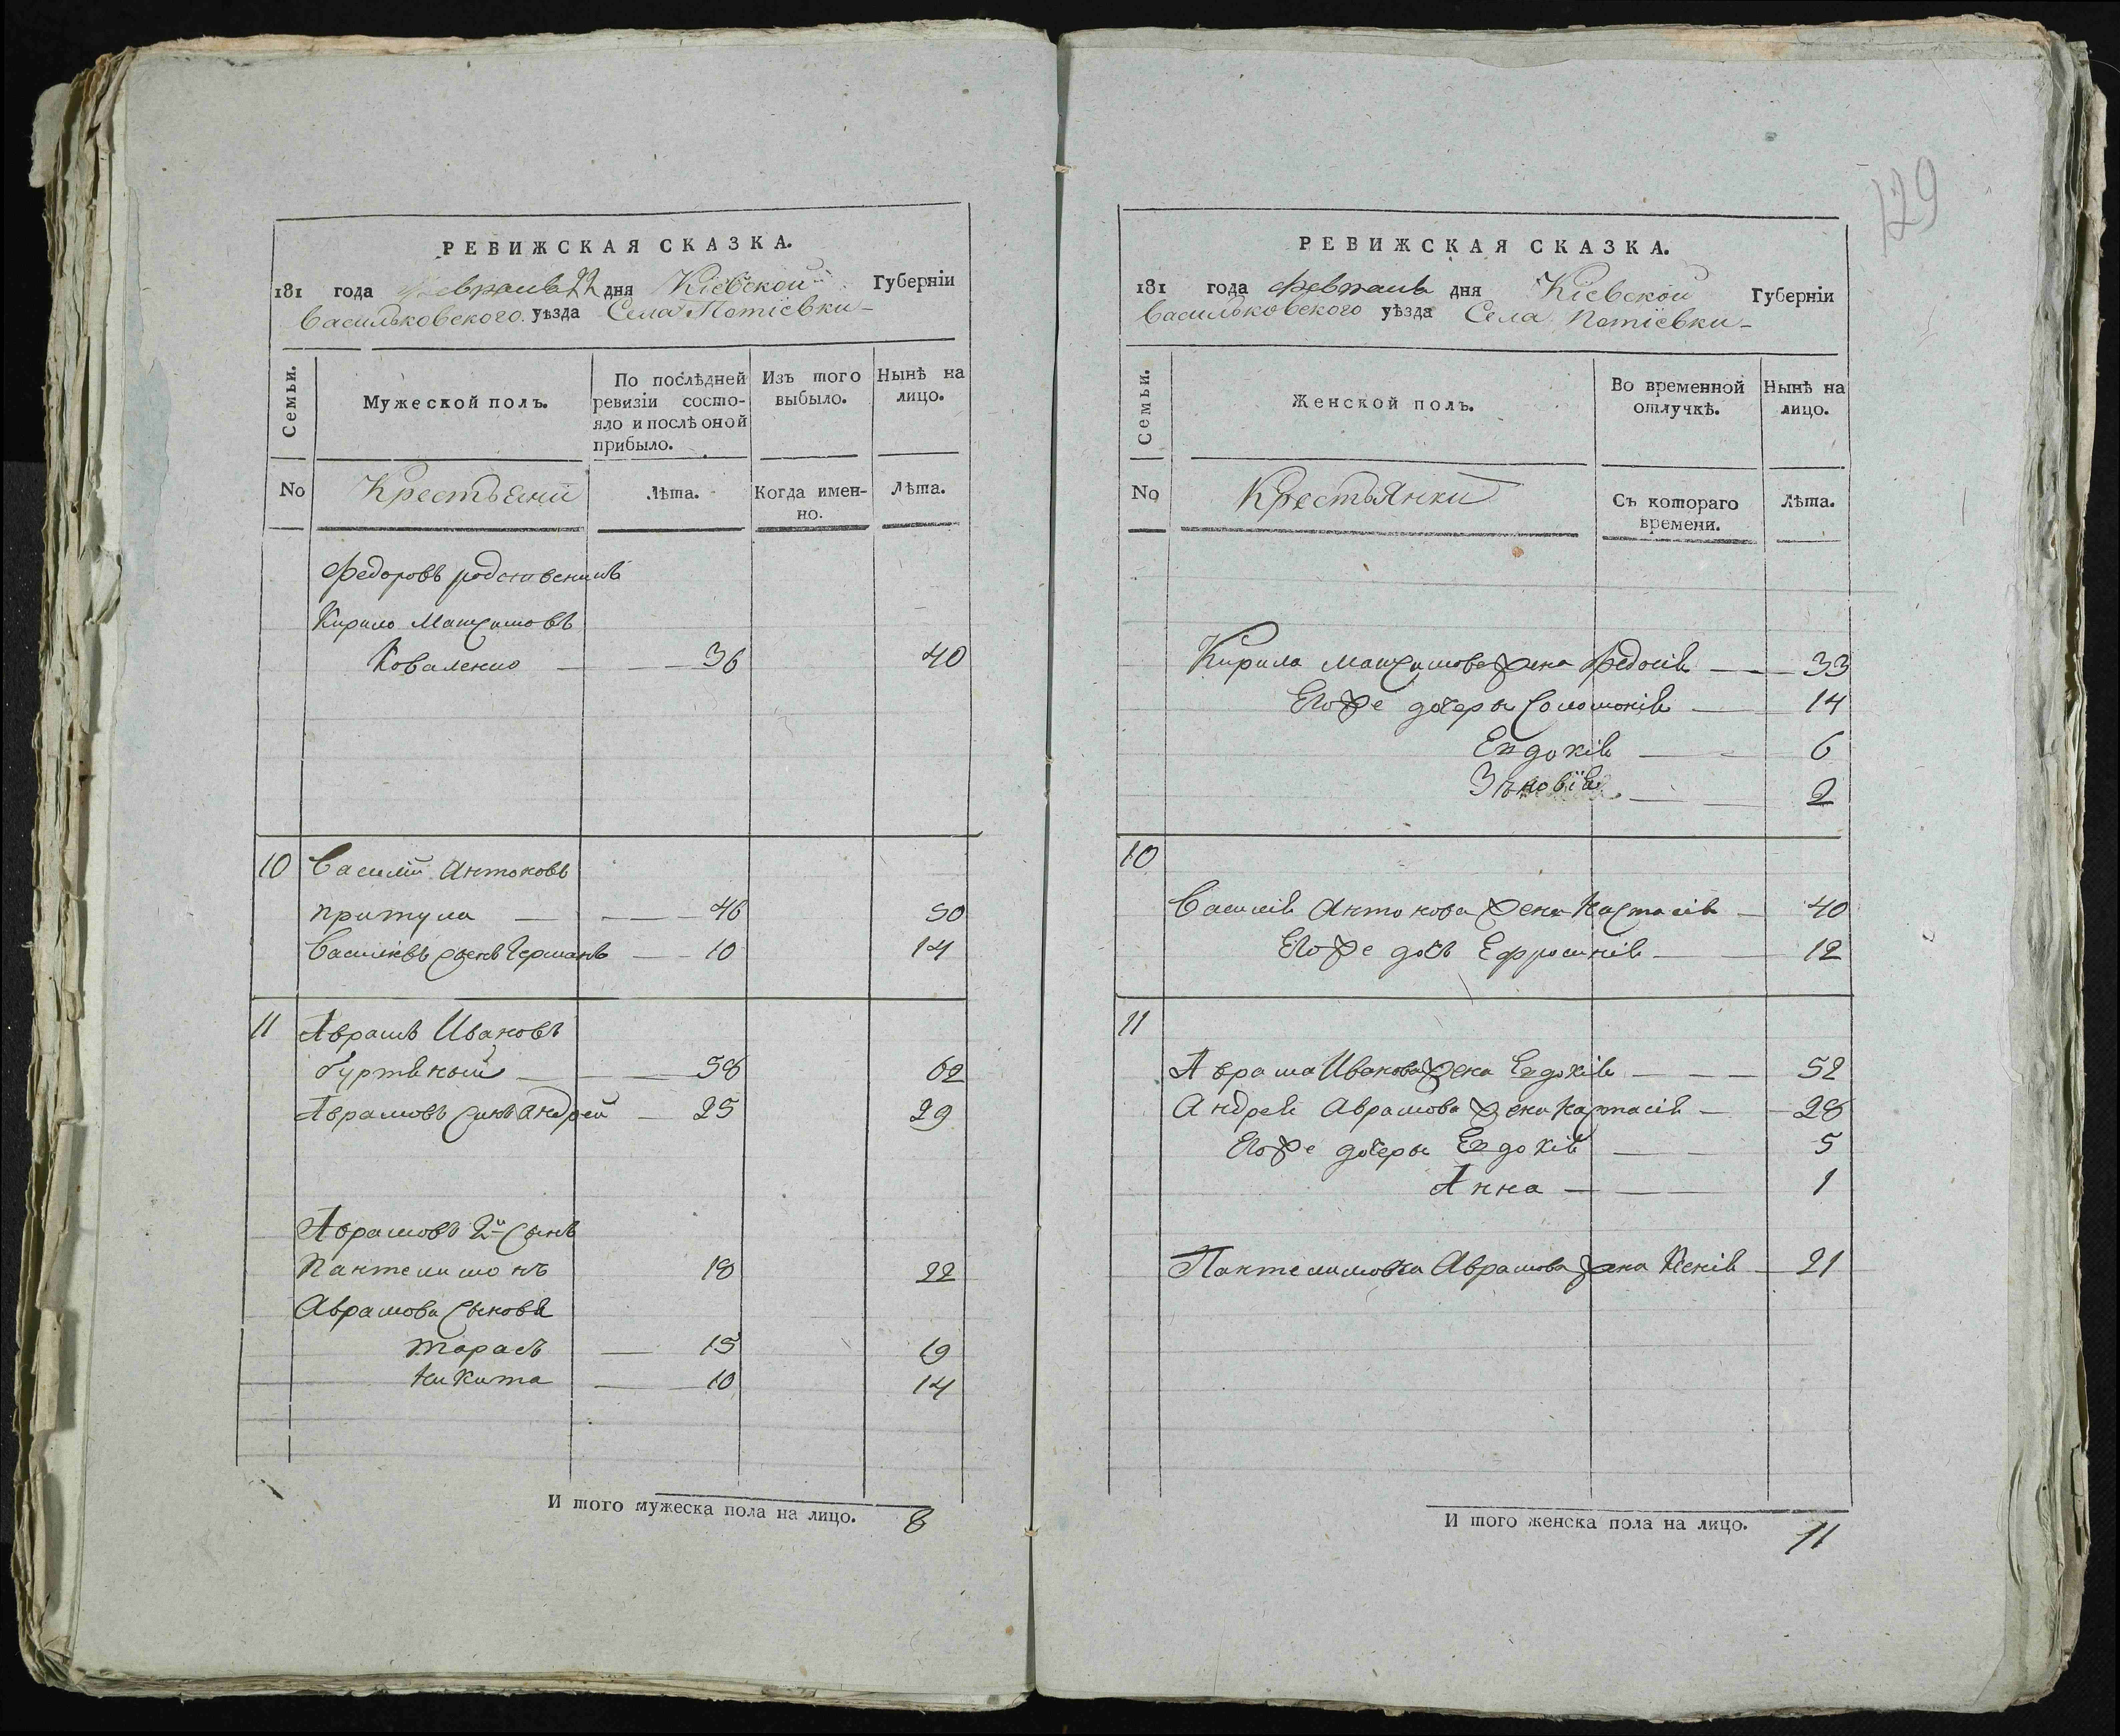 РЕВИЖСКАЯ СКАЗКА.
181 года февраля 22 дня Кіевской Губерніи
Васильковского уѣзда Села Потіевки
Семьи.
Мужеской полъ.
По послѣдней ревизіи состо-
яло и послѣ оной
прибыло.
Изъ того
выбыло.
Нынѣ на
лицо.
No Крестьяни Лѣта. Когда имен-
но. Лѣта.
Федоровъ родственикъ
Кирило Максимовъ
Коваленко 36 40
10 Василій Антоновъ
притула 46 50
Василіевъ сынъ Германъ 10 14
11 Аврамъ Ивановъ
58 62
Аврамовъ сынъ Андрей 25 29
Аврамовъ 2й сынъ
Пантелимонъ 18 22
Аврамова сыновя
Тарасъ 15 19
Никита 10 14
И того мужеска пола на лицо. 8
129
РЕВИЖСКАЯ СКАЗКА.
181 года февраля дня Кіевской Губерніи
Васильковского уѣзда Села Потіевки
Семьи.
Женской полъ.
Во временной
отлучкѣ.
Нынѣ на
лицо.
No Крестьянки Съ котораго
времени. Лѣта.
Кирила Максимова жена Федосія 33
Его же дочеры Соломонія 14
Евдокія 6
Зѣновія 2
10
Василія Антонова жена Настасія 40
Его же дочь Ефросинія 12
11
Аврама Иванова жена Евдокія 52
Андрея Аврамова жена Настасія 28
Его же дочеры Евдокія 5
Анна 1
Пантелимона Аврамова жена Ксенія 21
И того женска пола на лицо. 11